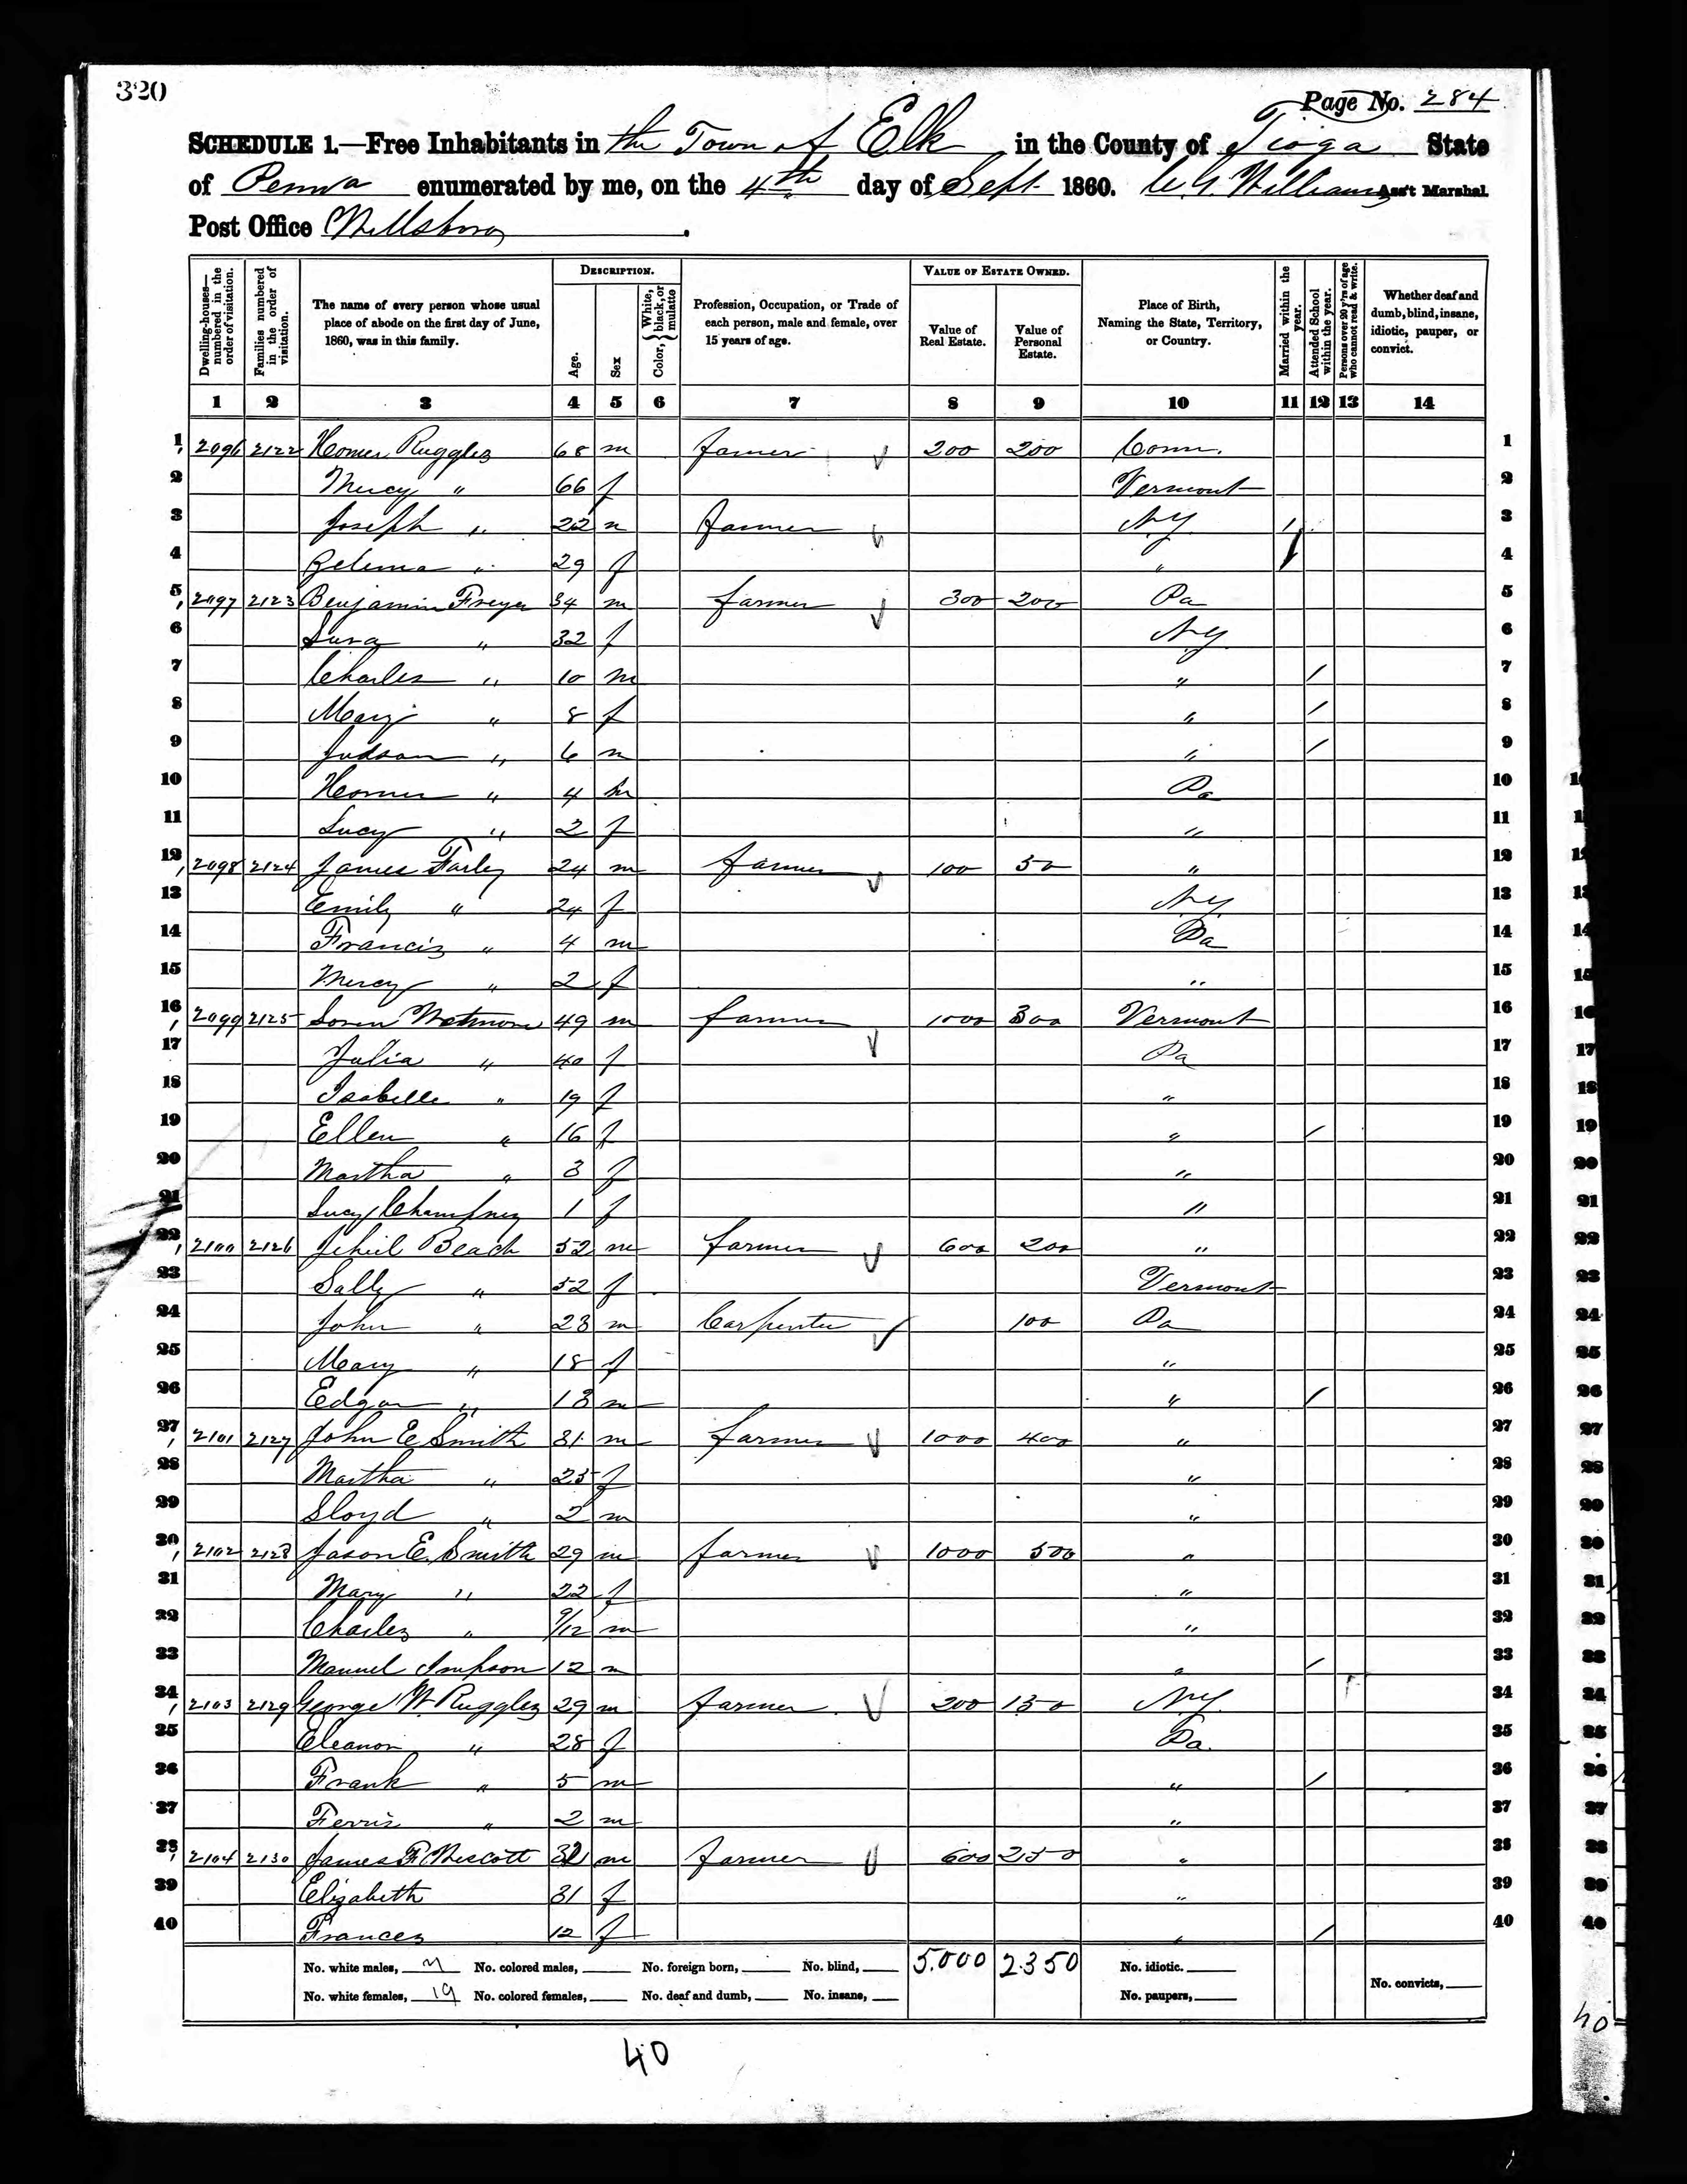 320
Page No. 284
SCHEDULE 1.—Free Inhabitants in the Town of Elk in the County of Tioga State
of Penna enumerated by me, on the 4th day of Sept 1860. Williams Ass't Marshal.
Post Office
Dwelling-houses—numbered in the order of visitation. Families numbered in the order of visitation. The name of every person whose usual place of abode on the first day of June, 1860, was in this family. DESCRIPTION. Age. Sex Color, { White, black, or mulatto Profession, Occupation, or Trade of each person, male and female, over 15 years of age. VALUE OF ESTATE OWNED. Value of Real Estate. Value of Personal Estate. Place of Birth, Naming the State, Territory, or Country. Married within the year. Attended School within the year. Persons over 20 y'rs of age who cannot read & write. Whether deaf and dumb, blind, insane, idiotic, pauper, or convict.
1 2 3 4 5 6 7 8 9 10 11 12 13 14
1 2096 2122 Homer Ruggles 68 m farmer 200 200 Conn. 1
2 Mercy " 66 f Vermont 2
3 Joseph " 22 m farmer NY / 3
4 29 f " / 4
5 2097 2123 Benjamin Freyer 34 m farmer 300 200 Pa 5
6 " 32 f NY 6
7 Charles " 10 m " / 7
8 Mary " 8 f " / 8
9 Judson " 6 m " / 9
10 Homer " 4 m Pa 10
11 Lucy " 2 f " 11
12 2098 2124 James Farley 24 m farmer 100 50 " 12
13 Emily " 24 f NY 13
14 Francis " 4 m Pa 14
15 Mercy " 2 f " 15
16 2099 2125 Loren Wetmore 49 m farmer 1000 300 Vermont 16
17 Julia " 40 f Pa 17
18 Isabelle " 19 f " 18
19 Ellen " 16 f " / 19
20 Martha " 3 f " 20
21 Lucy Champney 1 f " 21
22 2100 2126 Jehiel Beach 52 m farmer 600 200 " 22
23 Sally " 52 f Vermont 23
24 John " 23 m Carpenter 100 Pa 24
25 Mary " 18 f " 25
26 Edgar " 13 m " / 26
27 2101 2127 John E Smith 31 m farmer 1000 400 " 27
28 Martha " 25 f " 28
29 Lloyd " 2 m " 29
30 2102 2128 Jason E. Smith 29 m farmer 1000 500 " 30
31 Mary " 22 f " 31
32 Charles " 9/12 m " 32
33 Manuel Impson 12 m " / 33
34 2103 2129 George W. Ruggles 29 m farmer 200 150 NY 34
35 Eleanor " 28 f Pa. 35
36 Frank " 5 m " / 36
37 Ferris " 2 m " 37
38 2104 2130 James F Wescott 32 m farmer 600 250 " 38
39 Elizabeth 31 f " 39
40 Frances 12 f " / 40
No. white males, 21 No. colored males, No. foreign born, No. blind, 5.000 2350 No. idiotic.
No. white females, 19 No. colored females, No. deaf and dumb, No. insane, No. paupers, No. convicts,
40
40